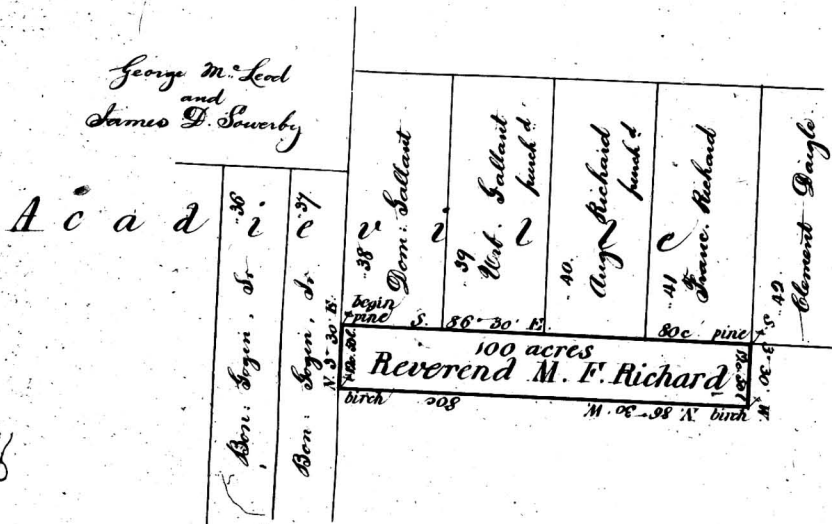 George McLeod
and
James D. Sowerby
Acadieville
36
Bon: Gogen, Sr
37
Bon: Gogen, Jr
38
Dom: Gallant
39
Urb. Gallant
purch d
40
Aug Richard
purch d
41
Franc. Richard
42
Clement Daigle
begin
pine
S. 86° 30' E.
80c pine
N. 3° 30' E.
100 acres
Reverend M. F. Richard
S. 3° 30' W.
birch
80c
N. 86° 30' W.
birch